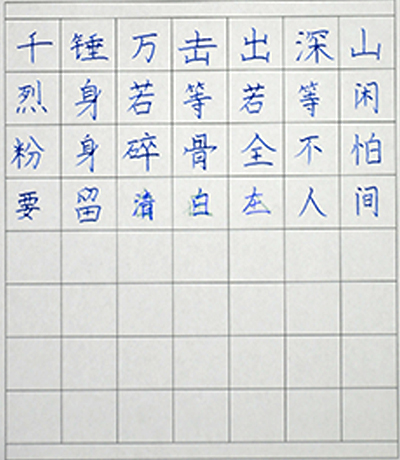 千锤万击出深山
烈身若等若等闲
粉身碎骨全不怕
要留清白在人间